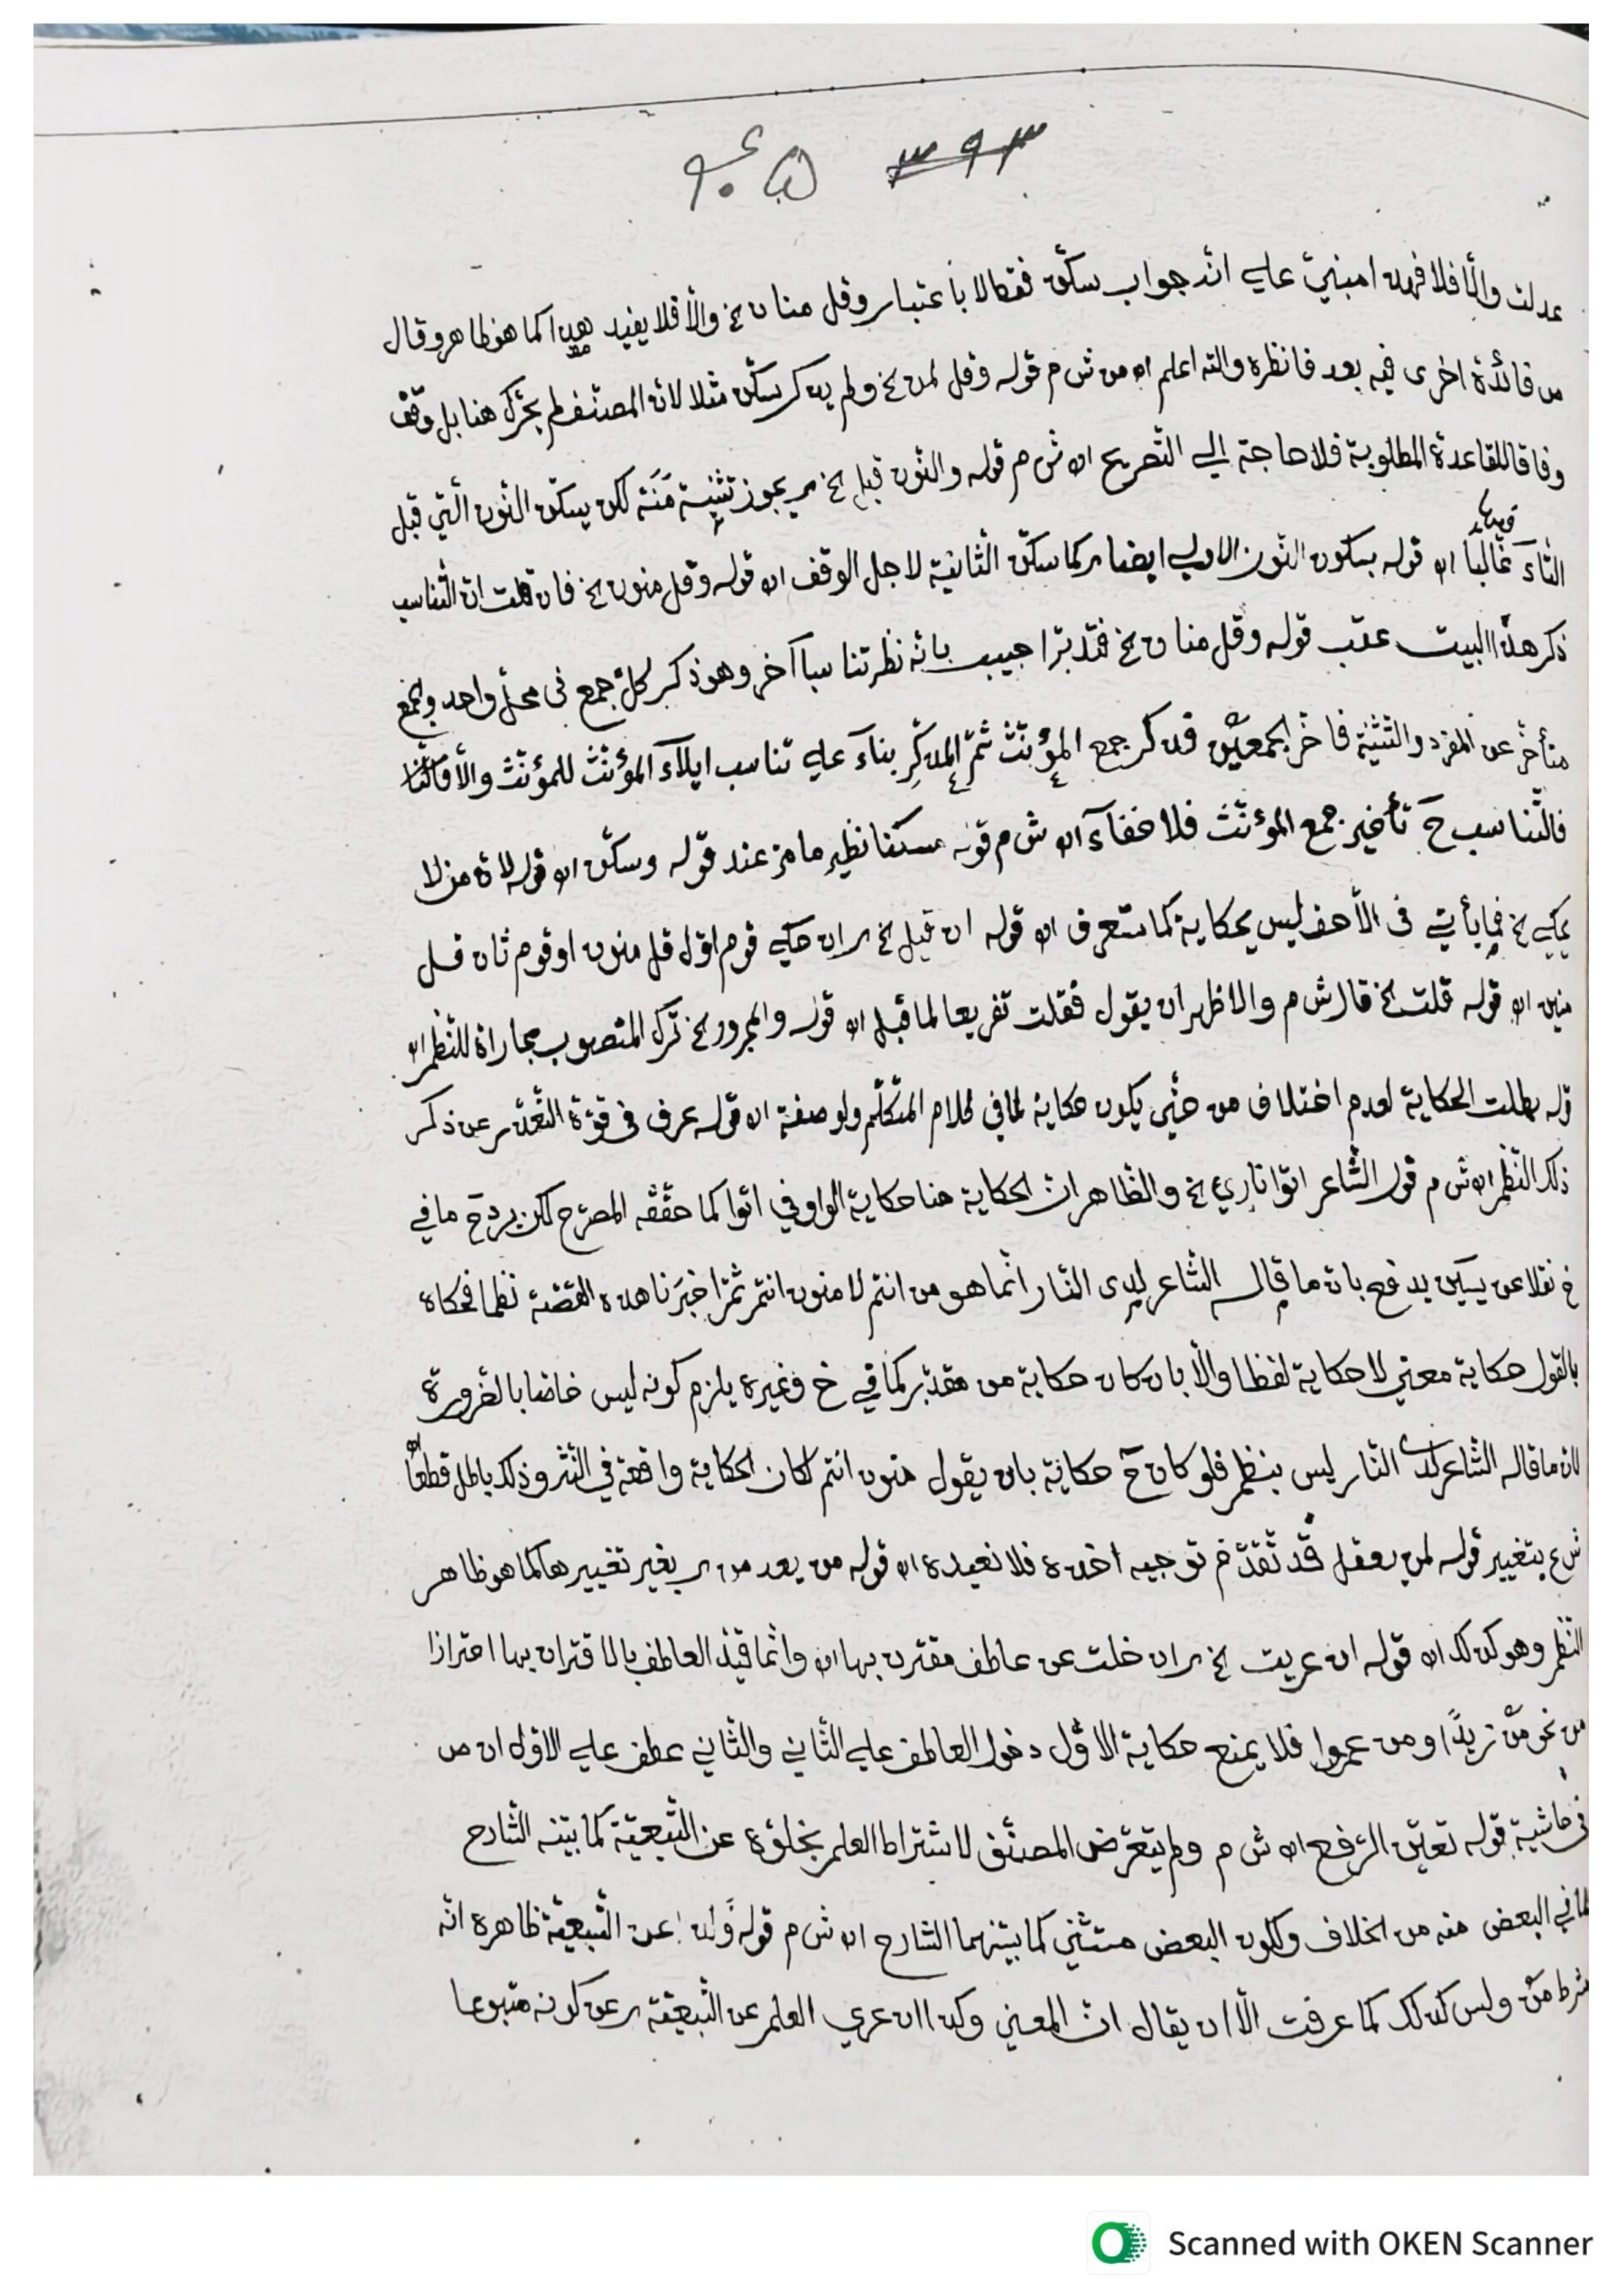 ٣٩٣
عدلت والا فلا فهذا مبني علي انه جواب سكن فقالا باعتبار وقل منان الخ والا فلا يفيد هذا كما هو ظاهر وقال
من فائدة اخرى فيه بعد فانظره والله اعلم اه من ش م قوله وقل لمن الخ ولم يذكر سكن مثلا لان المصنف لم يحرك هنا بل وقف
وفاقا للقاعدة المطلوبة فلا حاجة الي التصريح اه ش م قوله والنون قبل الخ يجوز تثنية مَنَة لكن يسكن النون التي قبل
التآء غالبًا اه قوله بسكون النون الاولي ايضا كما سكن الثانية لاجل الوقف اه قوله وقل منون الخ فان قلت ان التناسب
ذكر هذا البيت عقب قوله وقل منان الخ فتدبر اجيب بانه نظر تناسبا آخر وهو ذكر كل جمع في محل واحد والجمع
متأخر عن المفرد والتثنية فاخر الجمعين فذكر جمع المؤنث ثم المذكر بناءً علي تناسب ايلآء المؤنث للمؤنث والا
فالتناسب حَ تأخير جمع المؤنث فلا خفآء اه ش م قوله مسكنا نظير ما مر عند قوله وسكن اه قوله لان من لا
يحكي الخ فما يأتي في الاحف ليس بحكاية كما ستعرف اه قوله ان قيل الخ ان حكي قوم اول قل منون او قوم ثان قل
منين اه قوله قلت الخ قال ش م والاظهر ان يقول فقلت تفريعا لما قبل اه قوله والمجرور الخ ترك المنصوب مجاراة للنظم اه
قوله بطلت الحكاية لعدم اختلاف من حتي يكون حكاية لما في كلام المتكلم ولو صفة اه قوله عرف في قوة التعذر عن ذكر
ذلك النظم اه ش م قول الشاعر اتوا ناري الخ والظاهر ان الحكاية هنا حكاية الواو في اتوا كما حققه المصرح لكن يرد حَ ما في
خ نقلا عن يسين يدفع بان ما قال الشاعر لدى النار انما هو من انتم لا منون انتم ثم اخبرنا هذه القصة نظما فحكاه
بالقول حكاية معني لا حكاية لفظ والا بان كان حكاية من مقدر كما في خ وغيره يلزم كونه ليس خاصا بالضرورة
لان ما قاله الشاعر لدى النار ليس بنظم فلو كان حَ حكاية بان يقول منون انتم لكان الحكاية واقعة في النثر وذلك باطل قطعا اه
ش ع بتغيير قوله لمن يعقل قد تقدم توجيه اخذه فلا نعيده اه قوله من بعد من بغير تغييرها كما هو ظاهر
النظم وهو كذلك اه قوله ان عريت الخ ان خلت عن عاطف مقترن بها اه وانما قيد العاطف بالاقتران بها احترازا
من نحو من زيدًا ومن عمروا فلا يمنع حكاية الاول دخول العاطف علي الثاني والثاني عطف علي الاول اه ص
في حاشية قوله تعين الرفع اه ش م ولم يتعرض المصنف لاشتراط العلم بخلوه عن التبعية كما بينه الشارح
لما في البعض منه من الخلاف ولكون البعض مستثني كما بينهما الشارح اه ش م قوله وان عن التبعية ظاهره انه
شرط من وليس كذلك كما عرفت الا ان يقال ان المعني وكذا ان عري العلم عن التبعية عن كونه متبوعا
Scanned with OKEN Scanner